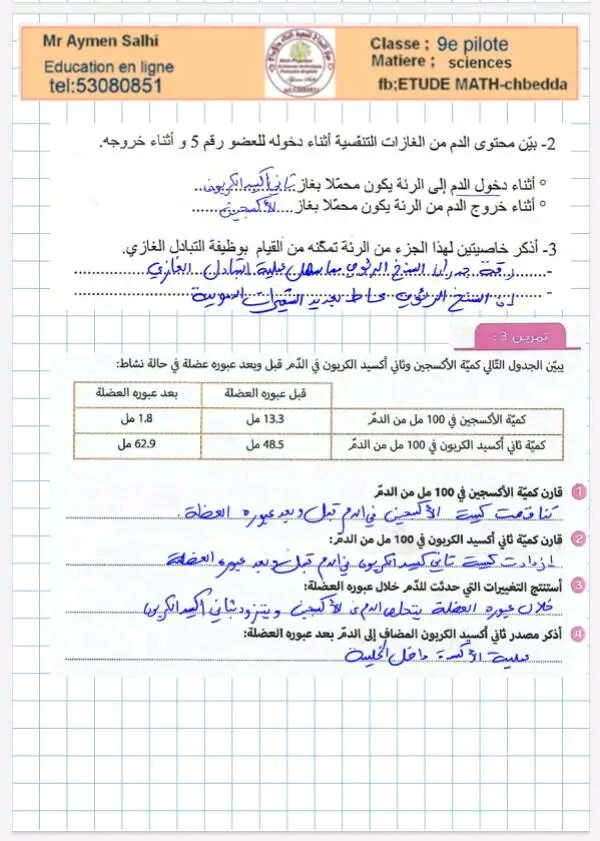 Mr Aymen Salhi
Education en ligne
tel:53080851
Classe ; 9e pilote
Matiere ; sciences
fb;ETUDE MATH-chbedda
2- بيّن محتوى الدم من الغازات التنفسية أثناء دخوله للعضو رقم 5 و أثناء خروجه.
° أثناء دخول الدم إلى الرئة يكون محمّلا بغاز ثاني أكسيد الكربون
° أثناء خروج الدم من الرئة يكون محمّلا بغاز الأكسجين
3- أذكر خاصيتين لهذا الجزء من الرئة تمكّنه من القيام بوظيفة التبادل الغازي.
- رقة جدران السنخ الرئوي مما يسهل عملية التبادل الغازي
- السنخ الرئوي محاط بعديد الشعيرات الدموية
تمرين 3 :
يبيّن الجدول التّالي كميّة الأكسجين وثاني أكسيد الكربون في الدّم قبل وبعد عبوره عضلة في حالة نشاط:
قبل عبوره العضلة بعد عبوره العضلة
كميّة الأكسجين في 100 مل من الدمّ 13.3 مل 1.8 مل
كميّة ثاني أكسيد الكربون في 100 مل من الدمّ 48.5 مل 62.9 مل
1 قارن كميّة الأكسجين في 100 مل من الدمّ
تناقصت كمية الأكسجين في الدم قبل و بعد عبوره العضلة.
2 قارن كميّة ثاني أكسيد الكربون في 100 مل من الدمّ:
ازدادت كمية ثاني أكسيد الكربون في الدم قبل و بعد عبوره العضلة
3 أستنتج التغييرات التي حدثت للدّم خلال عبوره العضلة:
خلال عبوره العضلة يتخلص الدم من الأكسجين و يتزود بثاني أكسيد الكربون
4 أذكر مصدر ثاني أكسيد الكربون المضاف إلى الدمّ بعد عبوره العضلة:
عملية الأكسدة داخل الخلية